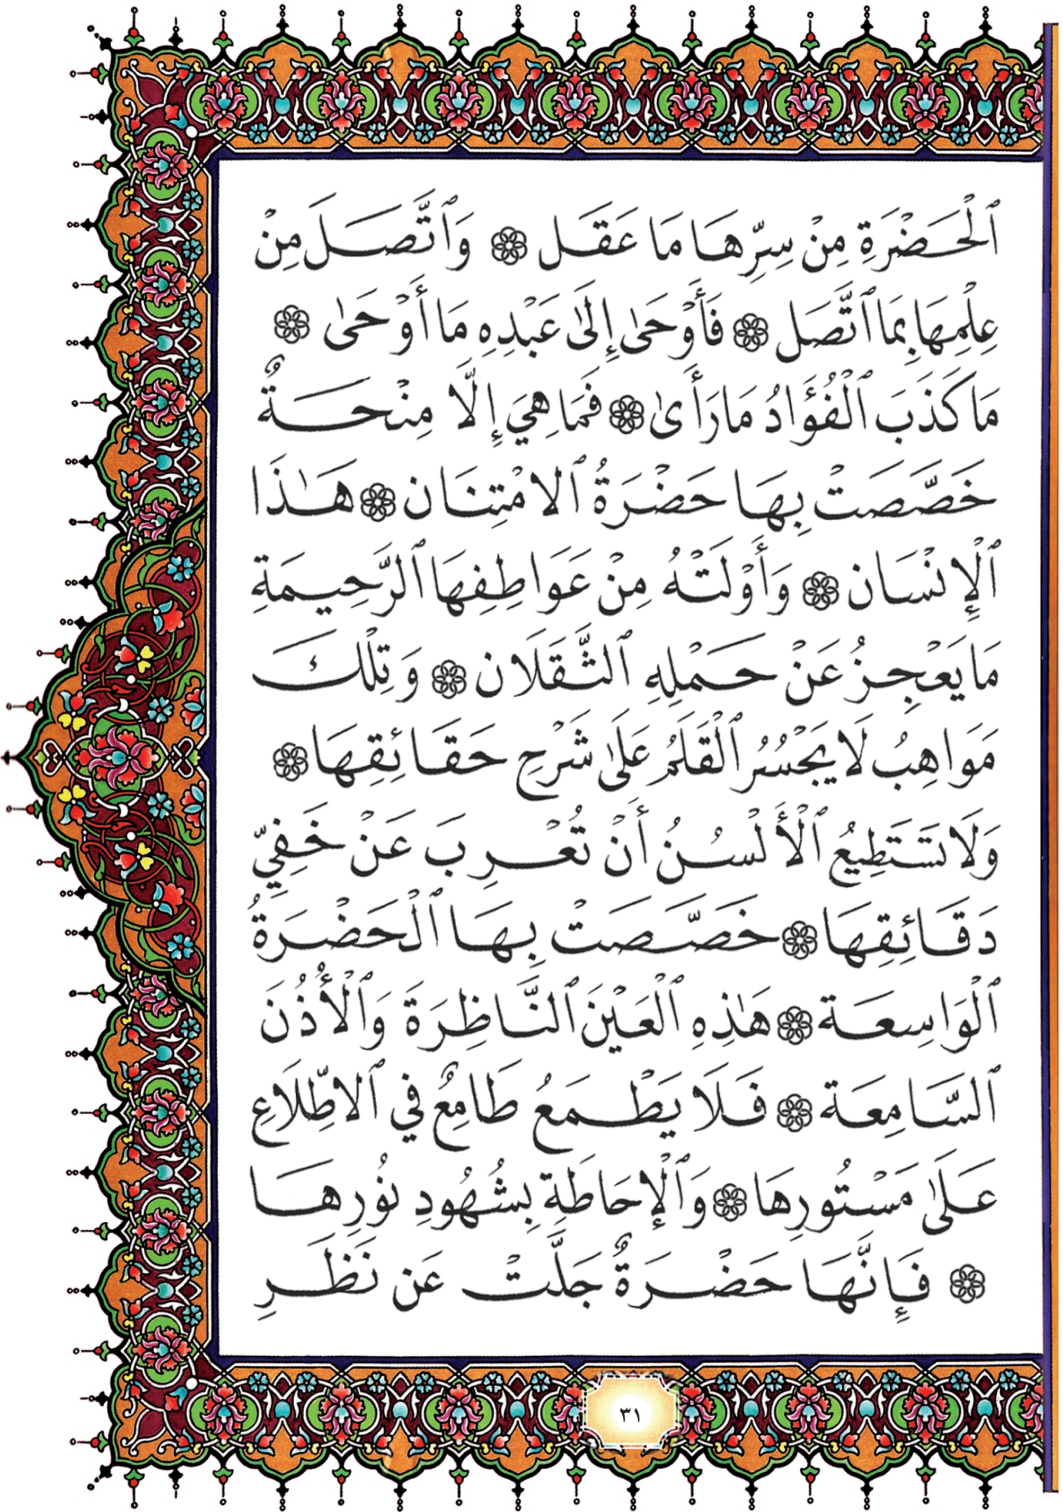 ٱلْحَضْرَةِ مِنْ سِرِّهَا مَا عَقَل ۞ وَٱتَّصَلَ مِنْ
عِلْمِهَا بِمَا ٱتَّصَل ۞ فَأَوْحَىٰ إِلَىٰ عَبْدِهِ مَا أَوْحَىٰ ۞
مَا كَذَبَ ٱلْفُؤَادُ مَا رَأَىٰ ۞ فَمَا هِيَ إِلَّا مِنْحَةٌ
خَصَّصَتْ بِهَا حَضْرَةُ ٱلامْتِنَان ۞ هَٰذَا
ٱلْإِنْسَان ۞ وَأَوْلَتْهُ مِنْ عَوَاطِفِهَا ٱلرَّحِيمَةِ
مَا يَعْجِزُ عَنْ حَمْلِهِ ٱلثَّقَلَان ۞ وَتِلْكَ
مَوَاهِبُ لَا يَجْسُرُ ٱلْقَلَمُ عَلَىٰ شَرْحِ حَقَائِقِهَا ۞
وَلَا تَسْتَطِيعُ ٱلْأَلْسُنُ أَنْ تُعْرِبَ عَنْ خَفِيِّ
دَقَائِقِهَا ۞ خَصَّصَتْ بِهَا ٱلْحَضْرَةُ
ٱلْوَاسِعَة ۞ هَٰذِهِ ٱلْعَيْنَ ٱلنَّاظِرَةَ وَٱلْأُذُنَ
ٱلسَّامِعَة ۞ فَلَا يَطْمَعُ طَامِعٌ فِي ٱلاطِّلَاعِ
عَلَىٰ مَسْتُورِهَا ۞ وَٱلْإِحَاطَةِ بِشُهُودِ نُورِهَا
۞ فَإِنَّهَا حَضْرَةٌ جَلَّتْ عَن نَظَرِ
٣١